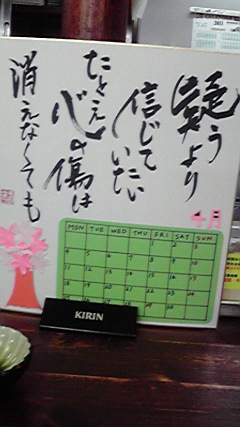 疑うより
信じていたい
たとえ心の傷は
消えなくても
4月
MON TUE WED THU FRI SAT SUN
1 2 3
4 5 6 7 8 9 10
11 12 13 14 15 16 17
18 19 20 21 22 23 24
28 29 30
KIRIN
2011